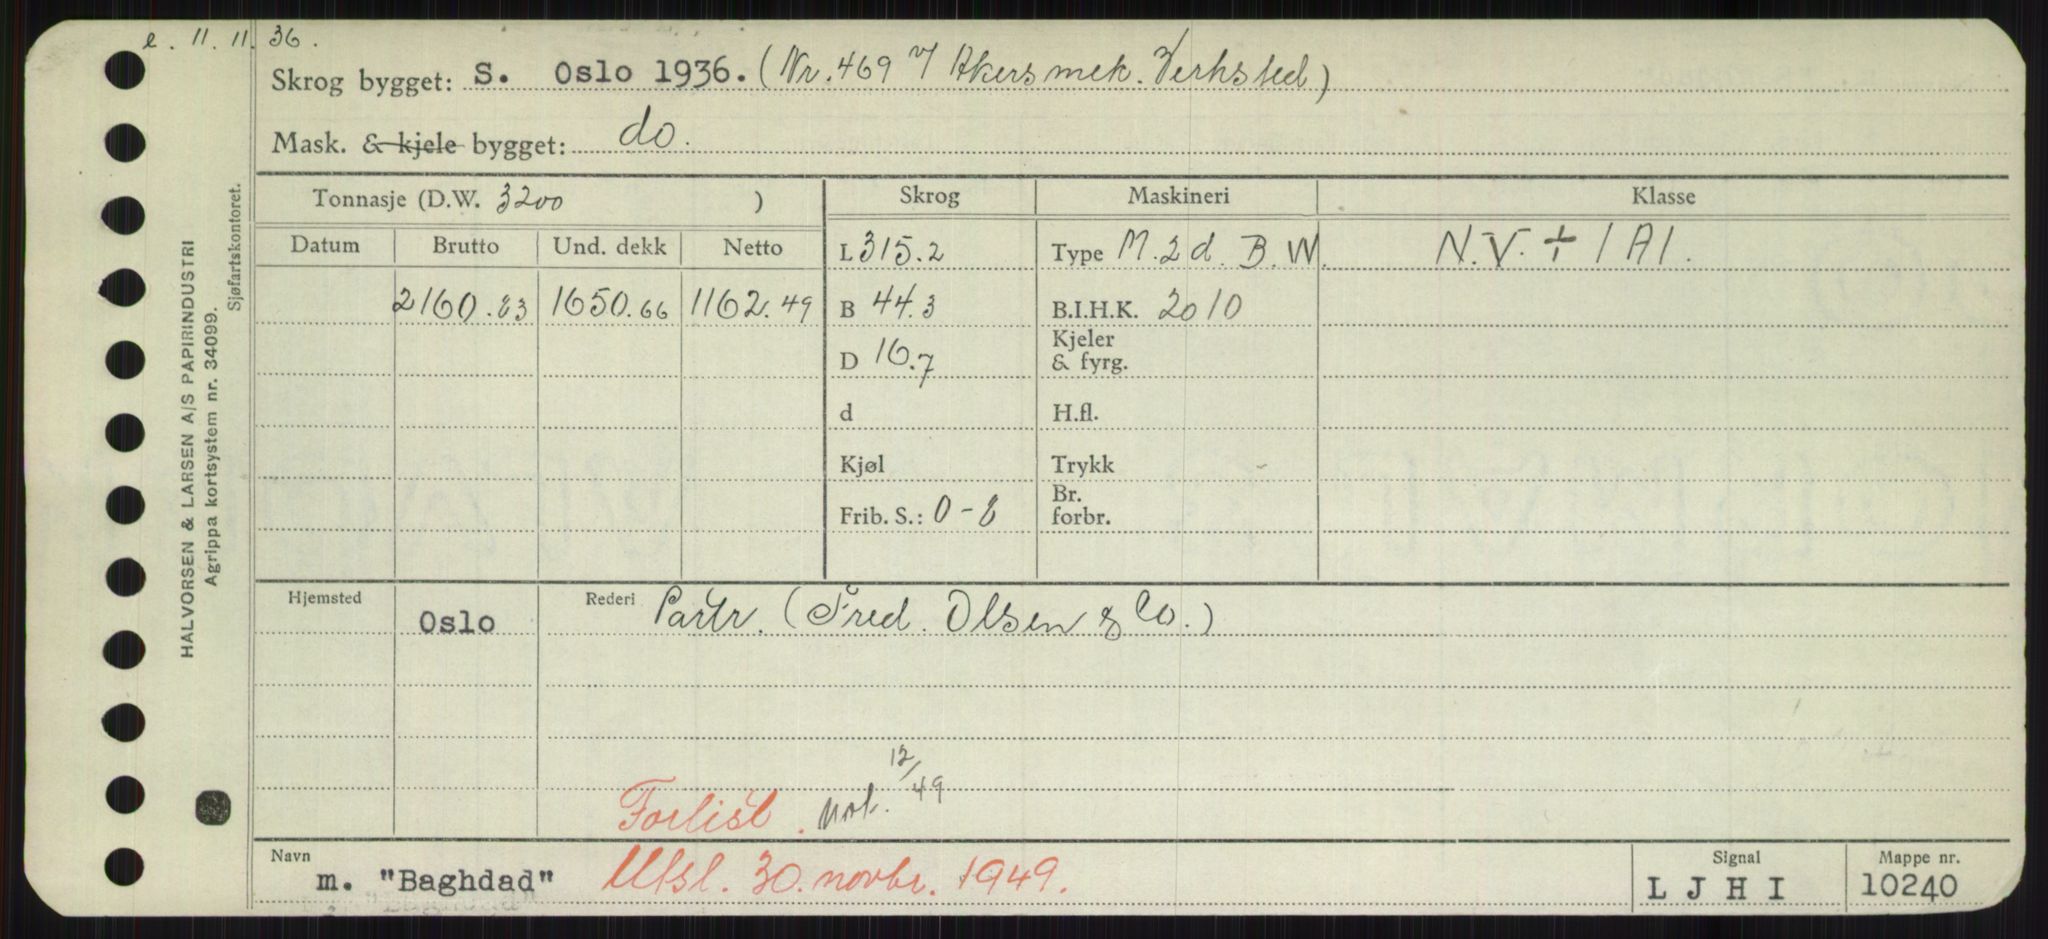 e. 11. 11. 36.
Skrog bygget: S. Oslo 1936. (Nr. 469 v/ Akers mek. Verksted)
Mask. & kjele bygget: do.
Tonnasje (D.W. 3200 ) Skrog Maskineri Klasse
Datum Brutto Und. dekk Netto L 315.2 Type M. 2 d. B. W. N.V. + 1A1.
2160.83 1650.66 1162.49 B 44.3 B.I.H.K. 2010
D 16.7 Kjeler & fyrg.
d H.fl.
Kjøl Trykk
Frib. S.: 0-8 Br. forbr.
Hjemsted Oslo Rederi Partr. (Fred. Olsen & Co.)
Forlist. not. 12/49
Navn m. "Baghdad" Utsl. 30. novbr. 1949. Signal L J H I Mappe nr. 10240
HALVORSEN & LARSEN A/S PAPIRINDUSTRI
Agrippa kortsystem nr. 34099.
Sjøfartskontoret.